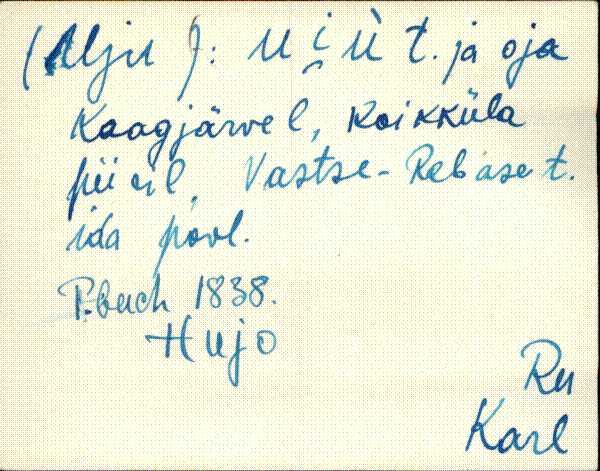 (Alju): u i̮ ù t. ja oja
Kaagjärvel, Koikküla
piiril, Vastse-Rebase t.
ida pool.
P.buch 1838.
Hujo
Ru
Karl